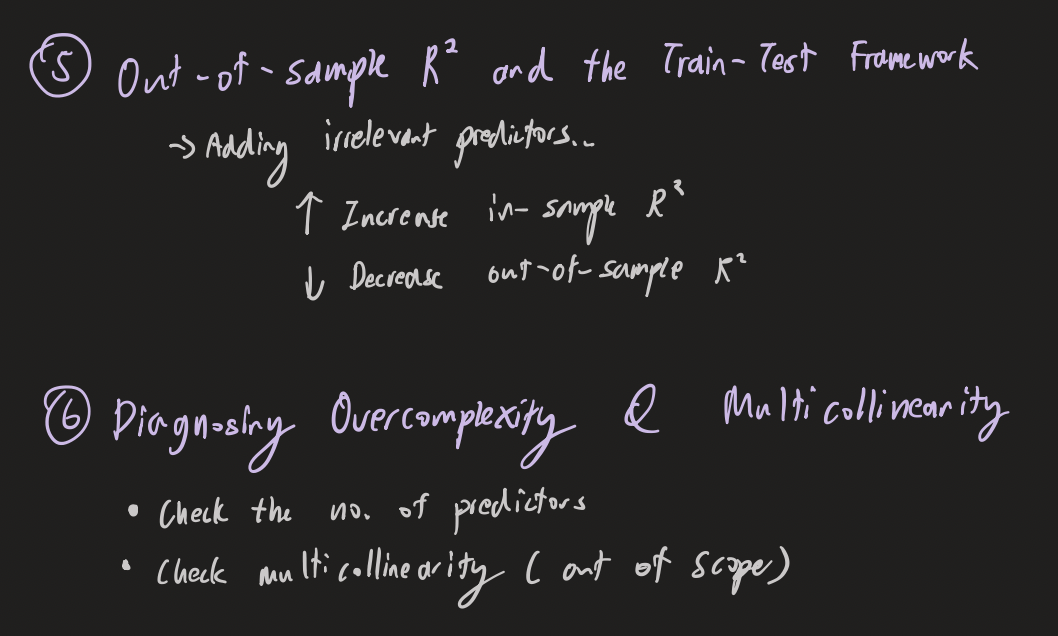 ⑤ Out-of-sample R² and the Train-Test Framework
→ Adding irrelevant predictors...
↑ Increase in-sample R²
↓ Decrease out-of-sample R²
⑥ Diagnosing Overcomplexity & Multicollinearity
• Check the no. of predictors
• Check multicollinearity (out of scope)